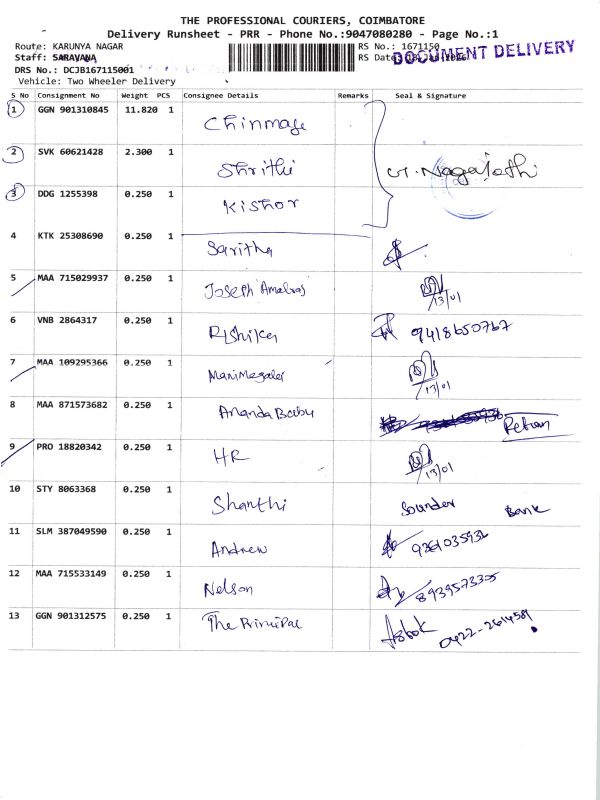 THE PROFESSIONAL COURIERS, COIMBATORE
Delivery Runsheet - PRR - Phone No.:9047080280 - Page No.:1
Route: KARUNYA NAGAR RS No.: 1671150
Staff: SARAVANA RS Date:
DOCUMENT DELIVERY
DRS No.: DCJB167115001
Vehicle: Two Wheeler Delivery
S No Consignment No Weight PCS Consignee Details Remarks Seal & Signature
1 GGN 901310845 11.820 1 Chinmaye
2 SVK 60621428 2.300 1 Shrithi G. Nagajothi
3 DDG 1255398 0.250 1 Kishor
4 KTK 25308690 0.250 1 Saritha
5 MAA 715029937 0.250 1 Joseph Amalraj 13/01
6 VNB 2864317 0.250 1 Rishikey 9418650767
7 MAA 109295366 0.250 1 Manimegalai 13/01
8 MAA 871573682 0.250 1 Ananda Babu Return
9 PRO 18820342 0.250 1 HR 13/01
10 STY 8063368 0.250 1 Shanthi Sounder Bank
11 SLM 387049590 0.250 1 Andrew 9361035936
12 MAA 715533149 0.250 1 Nelson 8939573335
13 GGN 901312575 0.250 1 The Principal Asbok 0422-2614589